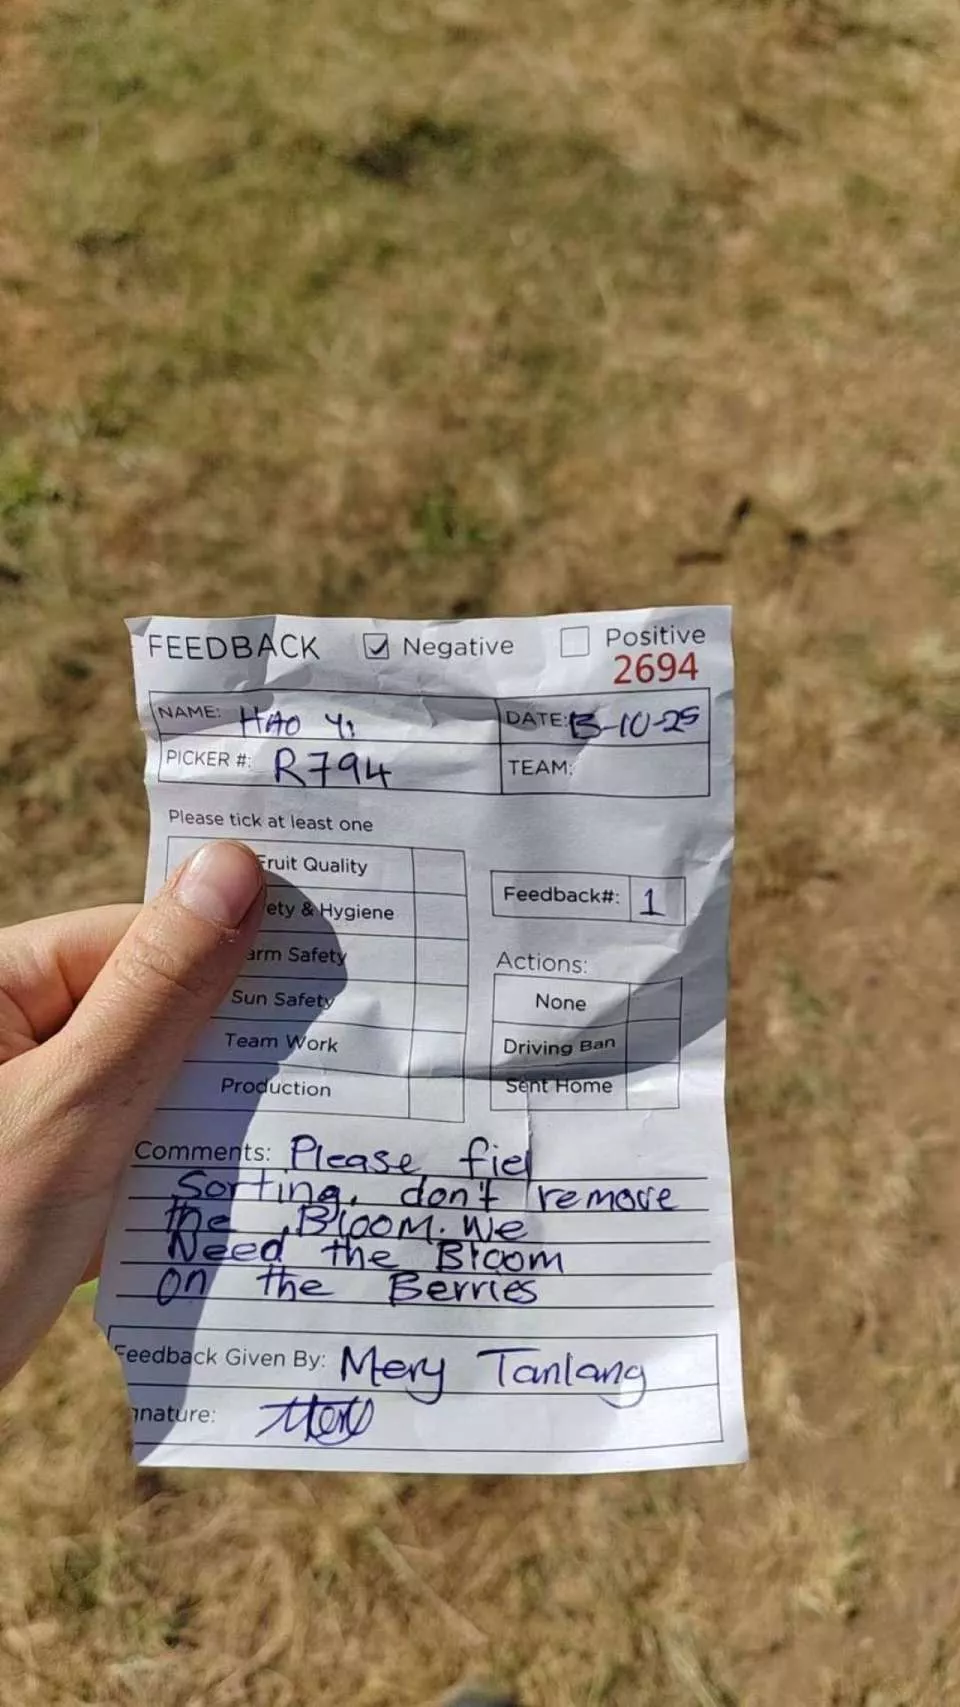 FEEDBACK Negative Positive
2694
NAME: HAO Yi DATE: 13-10-25
PICKER #: R794 TEAM:
Please tick at least one
Fruit Quality
ety & Hygiene
Feedback#: 1
arm Safety
Actions:
Sun Safety
None
Team Work
Driving Ban
Production
Sent Home
Comments: Please fiel
Sorting, don't remove
the Bloom. We
Need the Bloom
on the Berries
Feedback Given By: Mery Tanlang
nature: